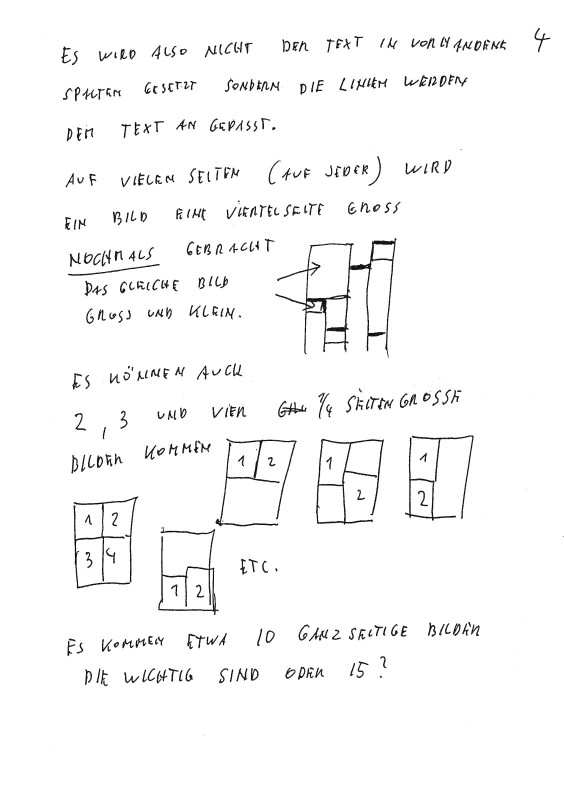 ES WIRD ALSO NICHT DER TEXT IN VORHANDENE 4
SPALTEN GESETZT SONDERN DIE LINIEN WERDEN
DEM TEXT AN GEPASST.
AUF VIELEN SEITEN (AUF JEDER) WIRD
EIN BILD EINE VIERTELSEITE GROSS
NOCHMALS GEBRACHT
DAS GLEICHE BILD
GROSS UND KLEIN.
ES KÖNNEN AUCH
2, 3 UND VIER 1/4 SEITENGROSSE
BILDER KOMMEN
1 2
1
2
1
2
1 2
3 4
1 2
ETC.
ES KOMMEN ETWA 10 GANZSEITIGE BILDER
DIE WICHTIG SIND ODER 15?